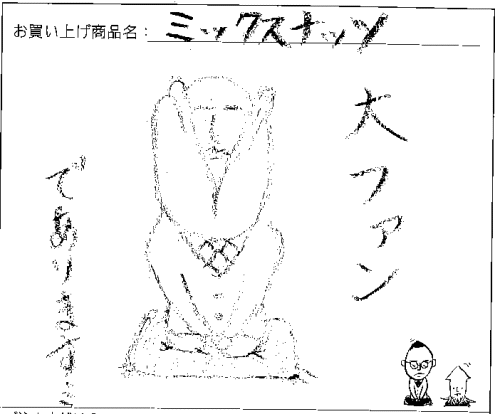 お買い上げ商品名：ミックスナッツ
大ファン
であります。